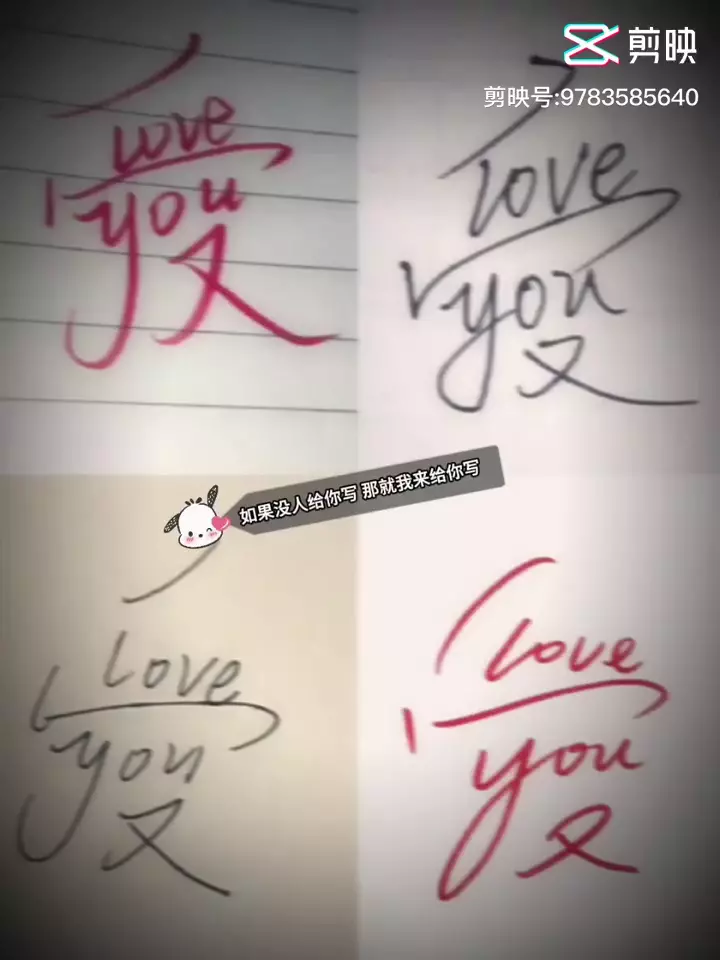 剪映
剪映号:9783585640
love
you
又
love
you
又
如果没人给你写 那就我来给你写
love
you
又
love
you
又